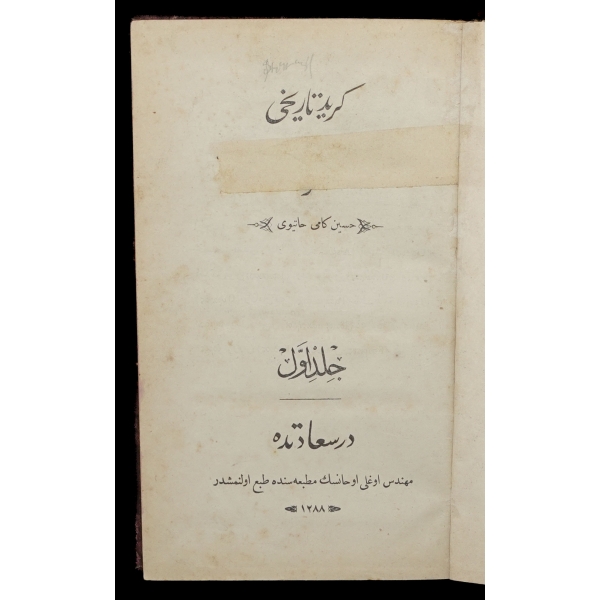 كريد تاريخى
حسين كامى حانيوى
جِلدِ اوَّل
در سعادتده
مهندس اوغلى اوحانسك مطبعه سنده طبع اولنمشدر
١٢٨٨